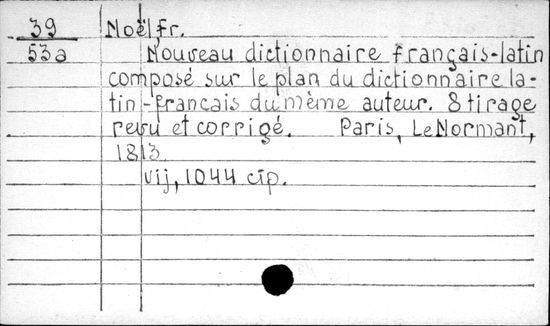 39 Noël, Fr.
53a Nouveau dictionnaire français-latin
composé sur le plan du dictionnaire la-
tin-francais du même auteur. 8 tirage
revu et corrigé. Paris, Le Normant,
1813
vij, 1044 cтр.